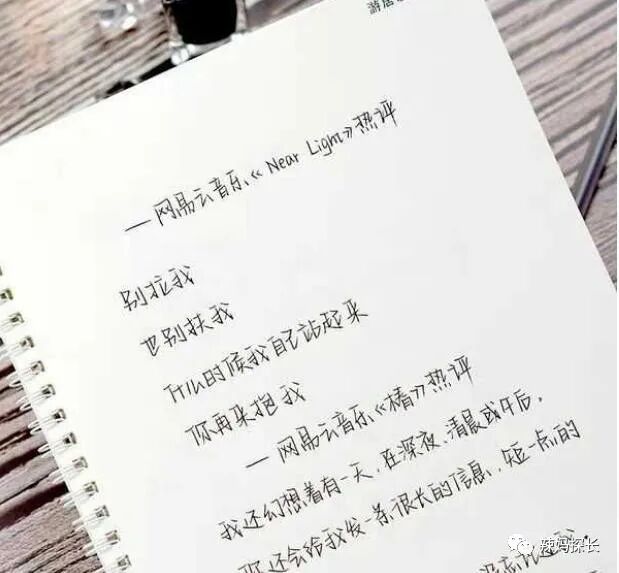 — 网易云音乐《Near Light》热评
别拉我
也别扶我
什么时候我自己站起来
你再来抱我
— 网易云音乐《椿》热评
我还幻想着有一天,在深夜、清晨或午后,
你还会给我发一条很长的信息,短一点的
辣妈探长